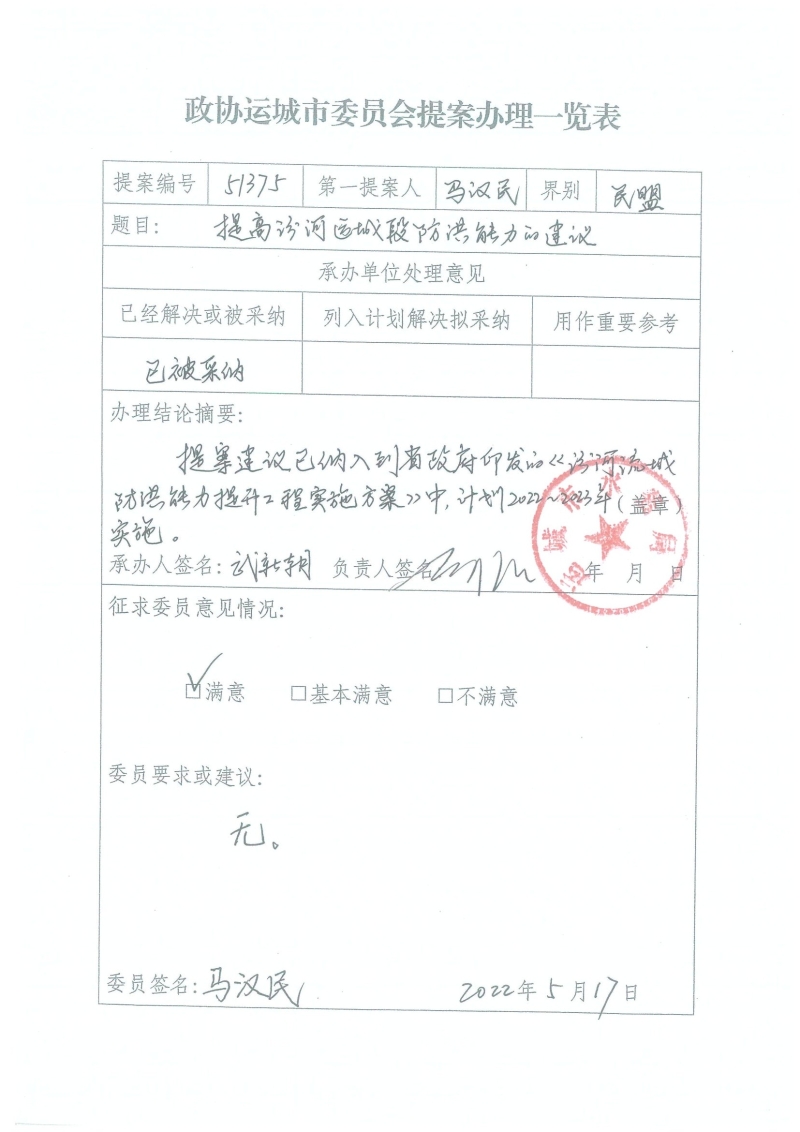 政协运城市委员会提案办理一览表
提案编号 51375 第一提案人 马汉民 界别 民盟
题目: 提高汾河运城段防洪能力的建议
承办单位处理意见
已经解决或被采纳 列入计划解决拟采纳 用作重要参考
已被采纳
办理结论摘要:
提案建议已纳入到省政府印发的《汾河流域
防洪能力提升工程实施方案》中,计划2022~2023年(盖章)
实施。
承办人签名: 武新朝 负责人签名 年 月 日
运城市水务局
征求委员意见情况:
☑满意 □基本满意 □不满意
委员要求或建议:
无。
委员签名: 马汉民 2022年5月17日